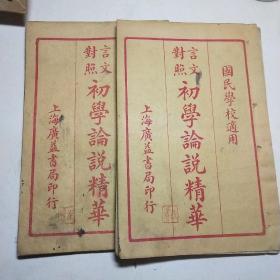 國民學校適用
言文對照
初學論說精華
上海廣益書局印行
言文對照
初學論說精華
上海廣益書局印行